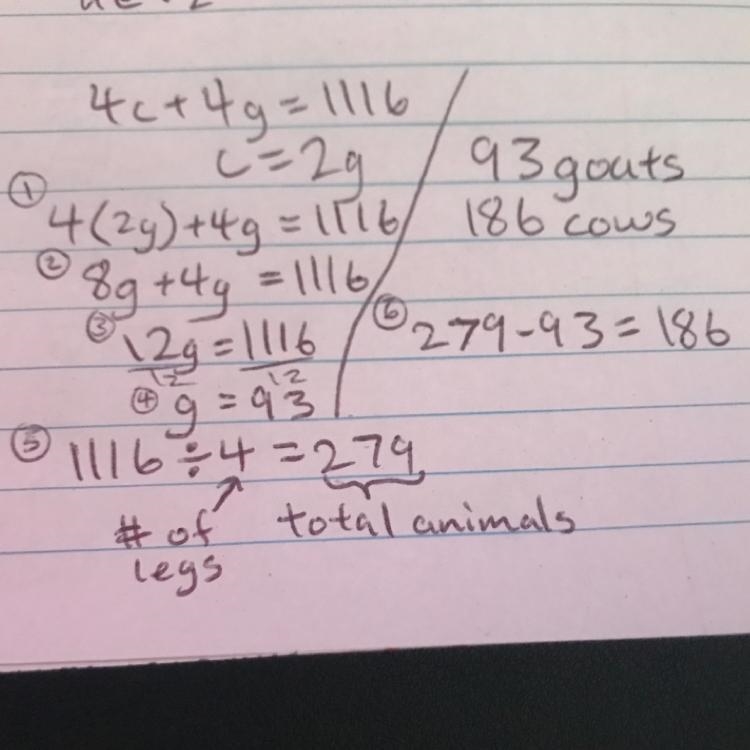 4c+4g=1116
c=2g
① 4(2g)+4g=1116
② 8g+4g=1116
③ 12g=1116
12 12
④ g=93
⑤ 1116÷4=279
# of legs
total animals
93 goats
186 cows
⑥ 279-93=186